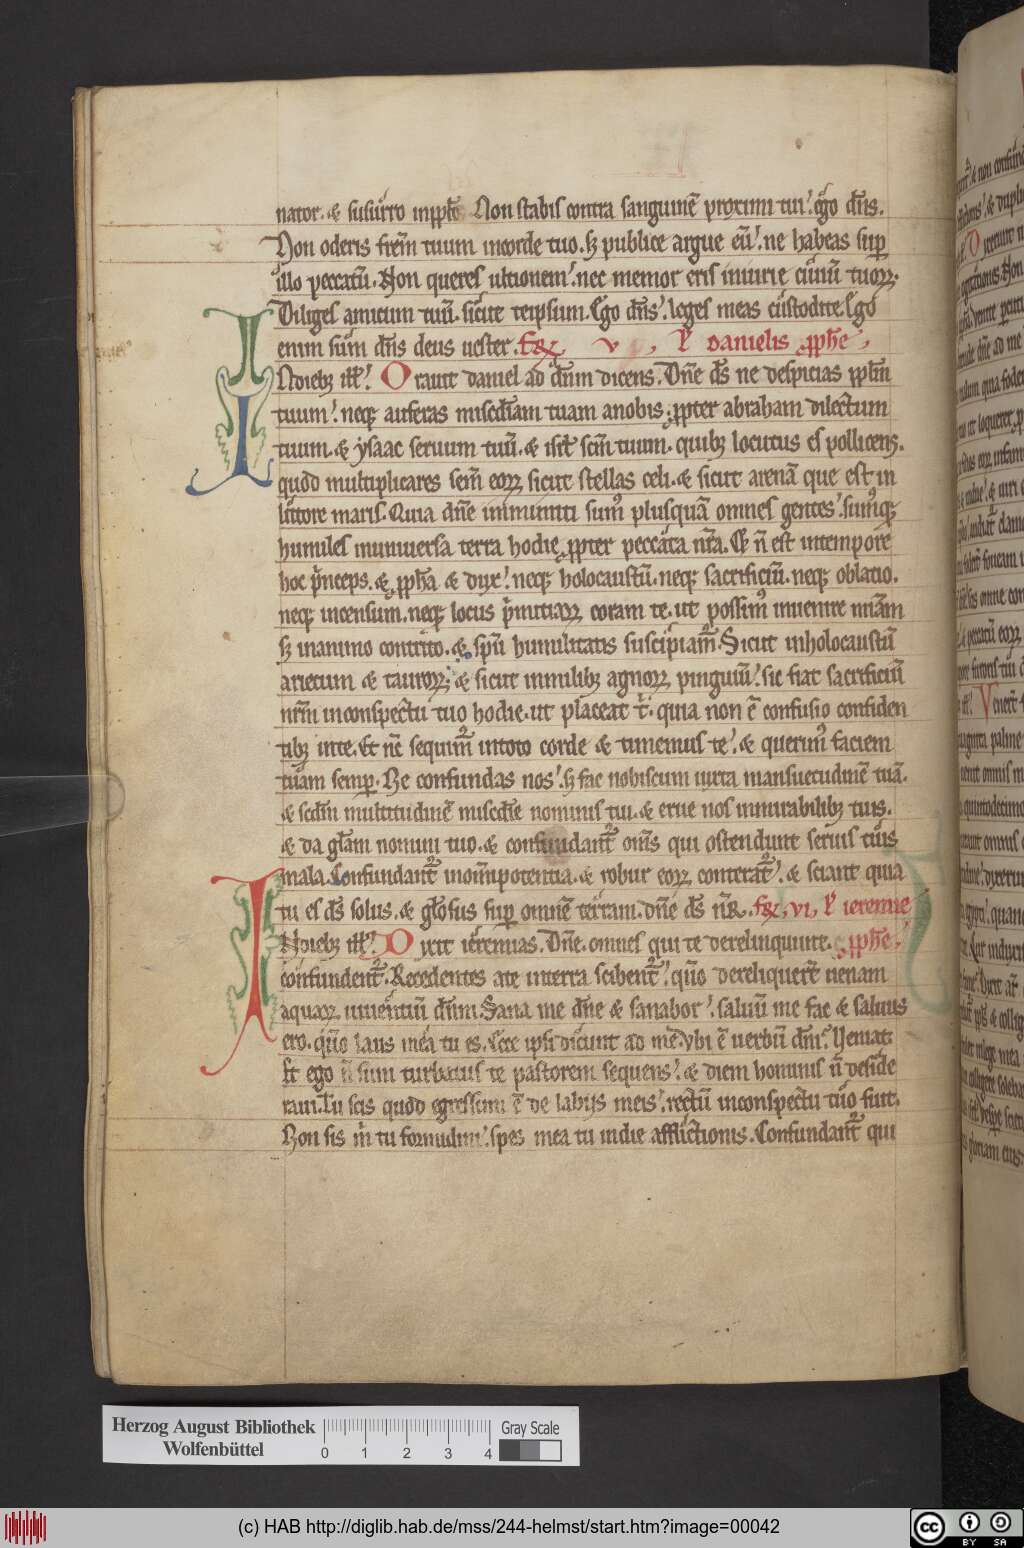 nator. & susurro in pp̄lo. Non stabis contra sanguinē proximi tui. ego dn̄s.
Non oderis frēm tuum in corde tuo. sꝫ publice argue eū. ne habeas sup
illo peccatū. Non queres ultionem. nec memor eris iniurie ciuiū tuoꝝ.
Diliges amicum tuū. sicut teipsum. Ego dn̄s. leges meas custodite. Ego
enim sum dn̄s deus uester. v. danielis ꝓph̄e
IN dieb; ill̄. Orauit daniel ad dn̄m dicens. Dn̄e ds̄ ne despicias pp̄lm
tuum. neq; auferas mis̄cdiam tuam a nobis. ꝓpter abraham dilectum
tuum. & ysaac seruum tuū. & isrl̄ scm̄ tuum. quib; locutus es pollicens.
quod multiplicares sem̄ eoꝝ sicut stellas celi. & sicut arenā que est in
littore maris. Quia dn̄e inminuti sum' plusquā omnes gentes. sum'q;
humiles in uniuersa terra hodie ꝓpter peccata nr̄a. Et n̄ est in tempore
hoc p̄nceps. & ꝓph̄a & dux. neq; holocaustū. neq; sacrificiū. neq; oblatio.
neq; incensum. neq; locus p̄mitiaꝝ coram te. ut possim' inuenire mīam
sꝫ in animo contrito. & spū humilitatis suscipiamr̄. Sicut in holocaustū
arietum & tauroꝝ. & sicut in milib; agnoꝝ pinguiū. sic fiat sacrificiū
nr̄m in conspectu tuo hodie. ut placeat t̄. quia non ē confusio confiden
tib; in te. Et nc̄ sequim̄ in toto corde & timemus te. & querim' faciem
tuam semp. Ne confundas nos. sꝫ fac nobiscum iuxta mansuetudinē tuā.
& scdm̄ multitudinē mis̄cdie nominis tui. & erue nos in mirabilib; tuis.
& da glam̄ nomini tuo. & confundantr̄ om̄s qui ostendunt seruis tuis
mala. Confundantr̄ in om̄ipotentia. & robur eoꝝ conteratr̄. & sciant quia
tu es ds̄ solus. & gl̄osus sup omnē terram. dn̄e ds̄ nr̄. vi. ieremie
IN dieb; ill̄. Dixit ieremias. Dn̄e. omnes qui te derelinquunt. ꝓph̄e.
confundentr̄. Recedentes a te in terra scribentr̄. qm̄o dereliquert̄ uenam
aquaꝝ uiuentiū dn̄m. Sana me dn̄e & sanabor. saluū me fac & saluus
ero. qm̄o laus mea tu es. Ecce ipsi dicunt ad me. ubi ē uerbū dn̄i. Ueniat.
Et ego n̄ sum turbatus te pastorem sequens. & diem hominis n̄ deside
raui. Tu scis quod egressum ē de labijs meis. rectū in conspectu tuo fuit.
Non sis m̄ tu formidini. spes mea tu in die afflictionis. Confundantr̄ qui
Herzog August Bibliothek
Wolfenbüttel
0 1 2 3 4
Gray Scale
(c) HAB http://diglib.hab.de/mss/244-helmst/start.htm?image=00042
cc BY SA